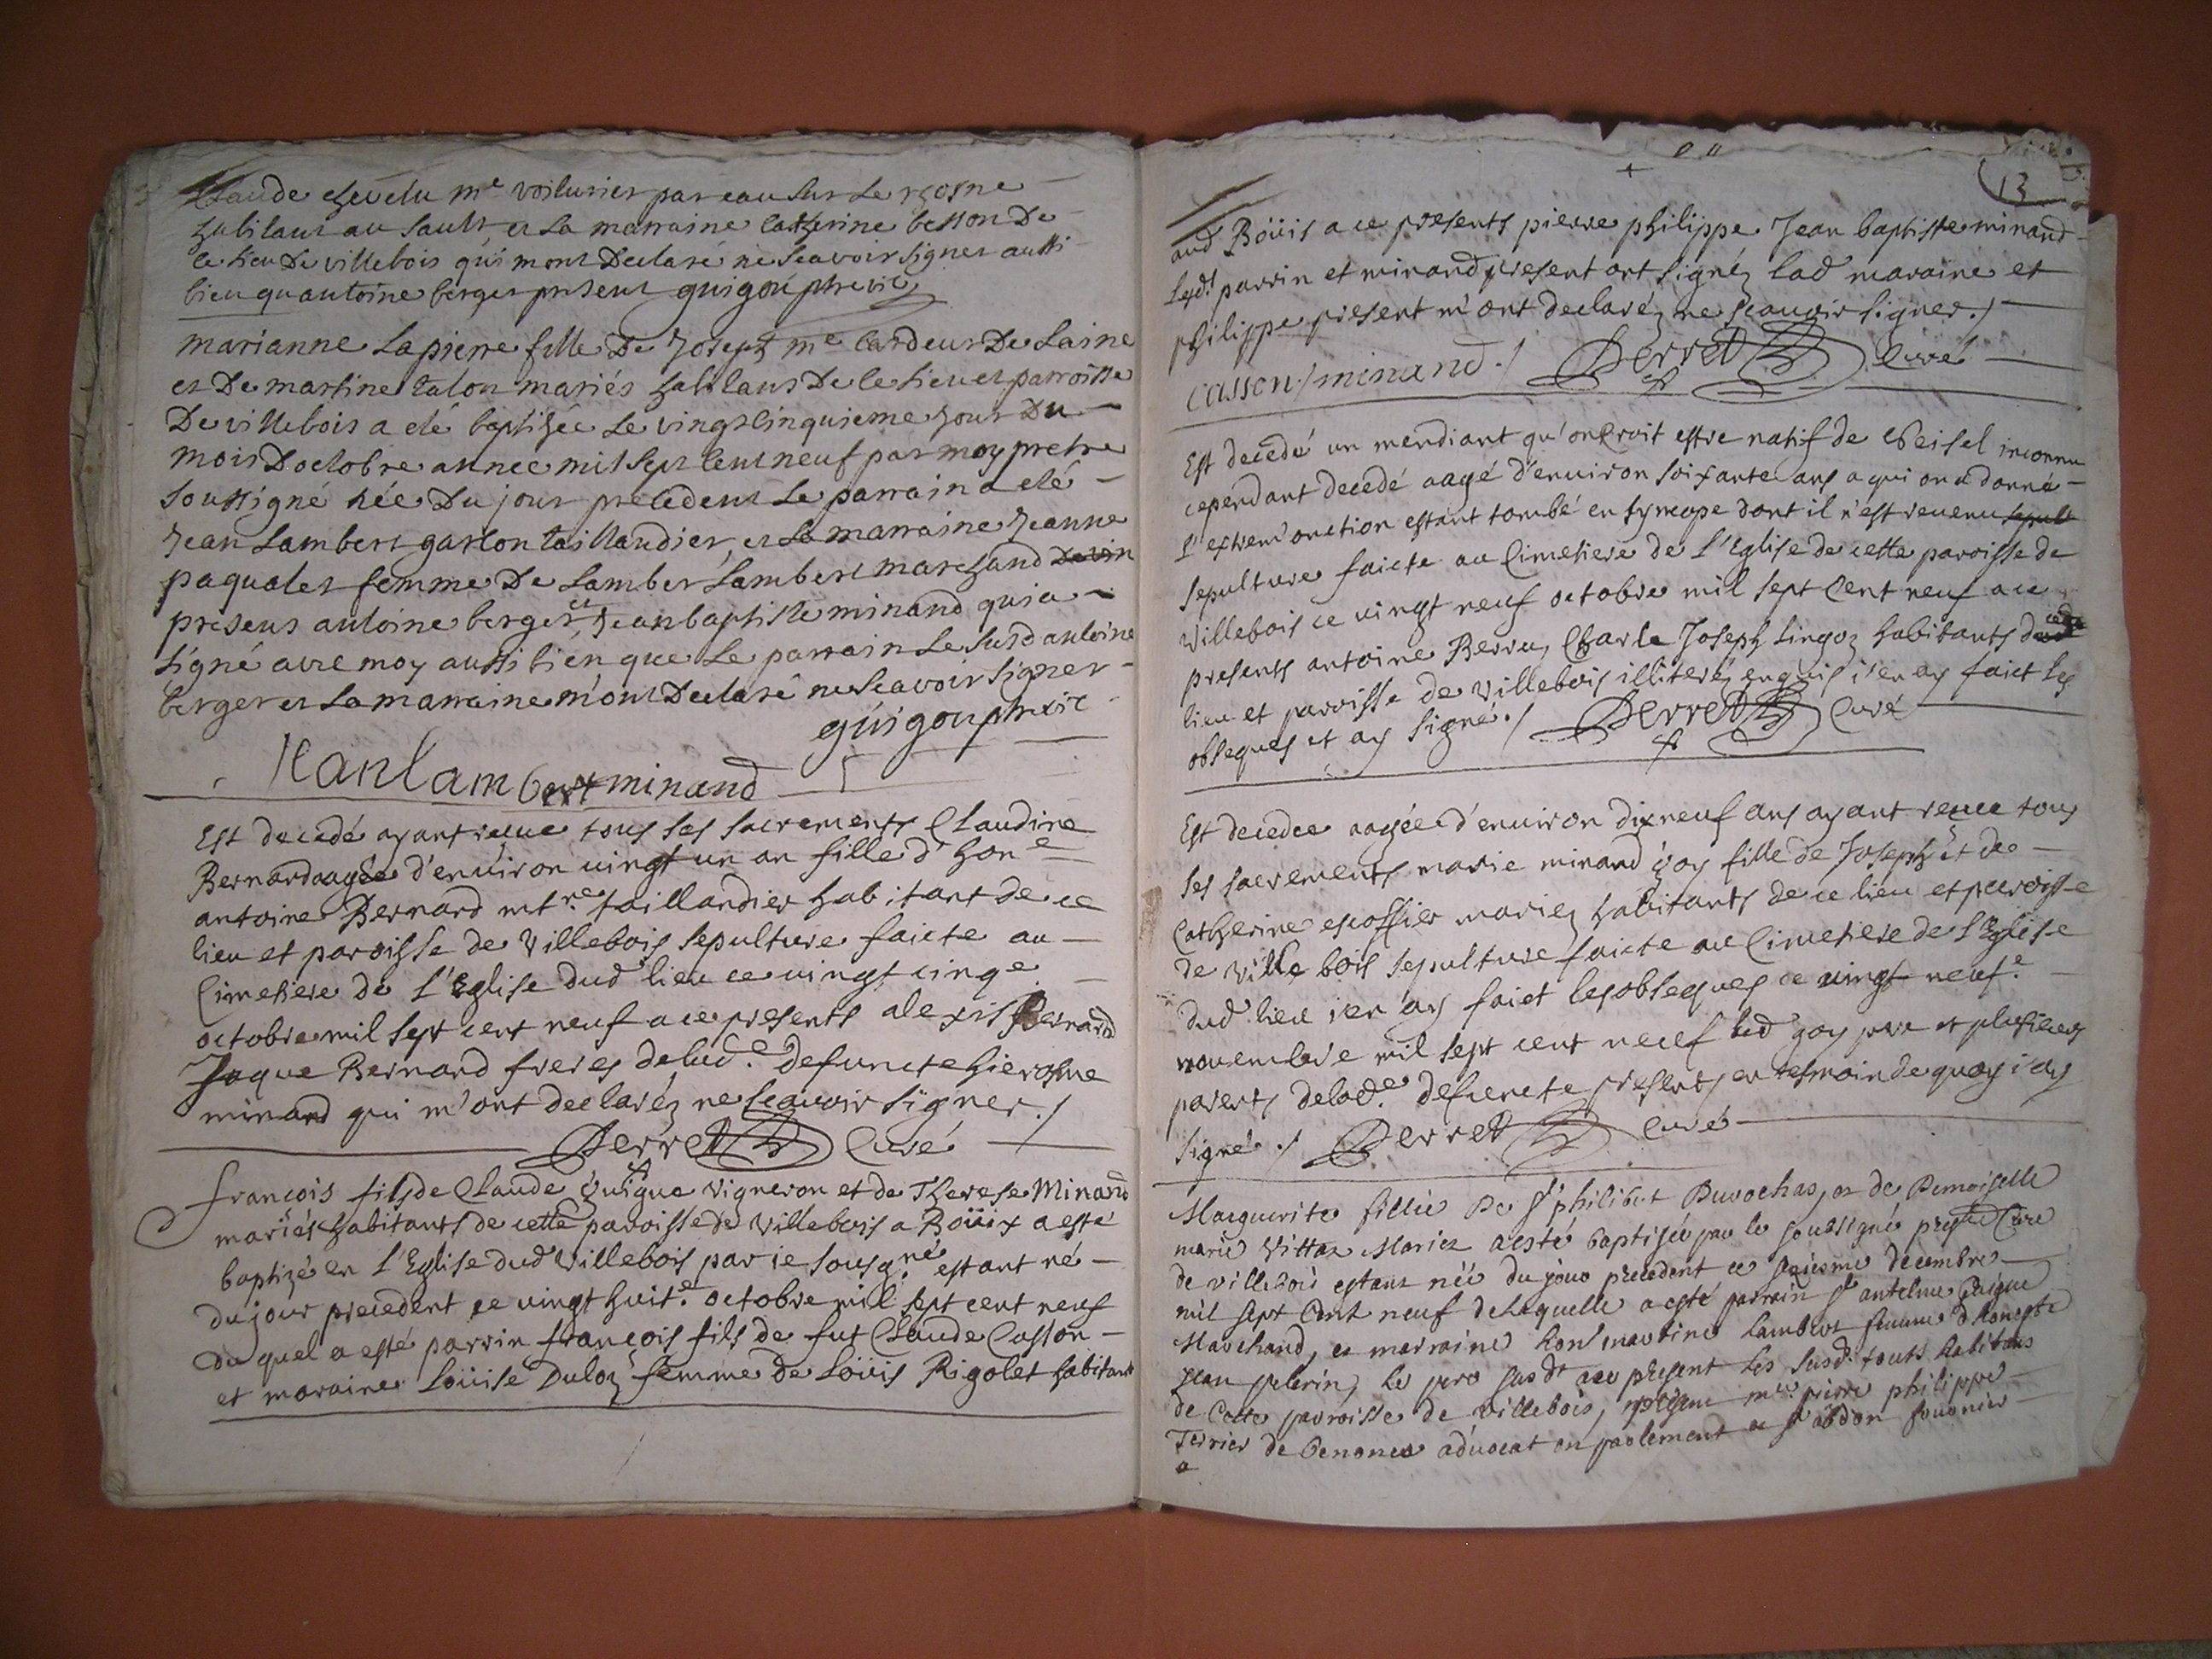 Claude chevelu me voiturier par eau sur Le rhosne
habitant au sault et La marraine Catherine besson De
ce Lieu De villebois qui mont Declaré ne Scavoir signer aussi
bien quantoine berger present guigou ptre vic
marianne Lapierre fille De Joseph me Cardeur De Laine
et De martine talon mariés habitans De ce Lieu et parroisse
De villebois a eté baptisée Le vingt cinquieme jour Du
mois Doctobre annee mil sept cent neuf par moy pretre
soussigné née Du jour precedent Le parrain a eté
Jean Lambert garcon taillandier, et La marraine Jeanne
paqualet femme De Lambert Lambert marchand De vin
presens antoine berger, et Jean baptiste minand qui a
signé avec moy aussi bien que Le parrain Le susd antoine
berger et La marraine m'ont Declaré ne Scavoir signer
guigou ptre vic
Jean Lambert minand
Est decedé ayant receue tous ses sacrements Claudine
Bernard aagée d'environ vingt un an fille d'hone
antoine Bernard mtre taillandier habitant de ce
lieu et paroisse de Villebois sepulture faicte au
Cimetiere de l'Eglise dud lieu ce vingt cinqe
octobre mil sept cent neuf a ce presents alexis Bernard
Jaque Bernard freres de lade defuncte hierosme
minand qui m'ont declaréz ne sçauoir signer ./
Perret Curé
François fils de Claude Guigue vigneron et de Therese Minand
mariés habitants de cette paroisse de Villebois a Boüix a esté
baptizé en l'Eglise dud Villebois par ie sousgné estant né
du jour precedent ce vingt huite octobre mil sept cent neuf
du quel a esté parrin françois fils de fut Claude Casson
et maraine Loüise Duloz femme de Loüis Rigolet habitant
13
aud Boüis a ce presents pierre philippe Jean baptiste minand
Lesdt parrin et minand present ont signéz lad maraine et
philippe present m'ont declaréz ne sçauoir signer ./
casson ./ minand ./ Perret Curé
Est decedé un mendiant qu'on croit estre natif de Seisel inconnu
cependant decedé aagé d'environ soixante ans a qui on a donné
l'extrem'onction estant tombé en syncope dont il n'est revenu sepult
sepulture faicte au Cimetiere de l'Eglise de cette paroisse de
Villebois ce vingt neuf octobre mil sept cent neuf a ce
presents antoine Berru, Charle Joseph Lingoz habitants de ce
lieu et paroisse de Villebois illiteréz enquis i'en ay faict les
obseques et ay signé ./ Perret Curé
Est decedee aagée d'environ dix neuf ans ayant receue tous
ses sacrements marie minand goy fille de Joseph et de
Catherine escoffier mariez habitants de ce lieu et paroisse
de Ville bois sepulture faicte au Cimetiere de l'Eglise
dud lieu i'en ay faict les obseques ce vingt neufe
novembre mil sept cent neuf led goy pere et plusieurs
parents de lade defuncte presents en tesmoin de quoy i'ay
signé ./ Perret Curé
Marguerite fillie De Sr philibert Duvochas, et de Demoiselle
marie Vittaz Mariez a esté baptisée par le soubsigné prestre Curé
de villebois estant née du jour precedent ce sixiesme decembre
mil sept Cent neuf de Laquelle a esté parrain Sr antelme Guigue
Marchand, et marraine hon martine Lambert femme d'honeste
Jean pelerin, le pere susdt ace present Les susdt touts habitans
de Cette parroisse de villebois, mre pierre philippe
Terrier de advocat en parlement et Sr abdon founnier